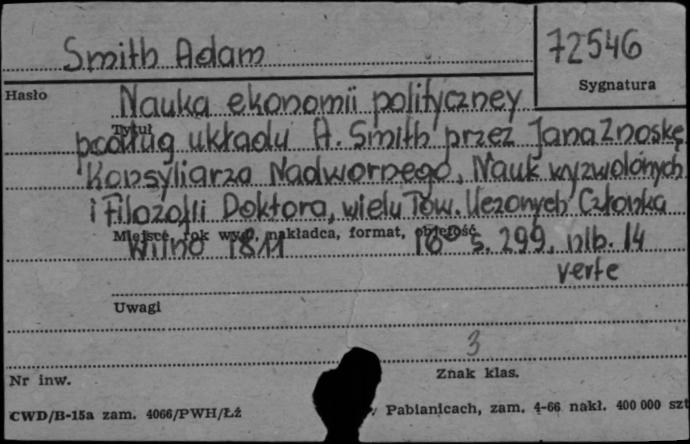 Smith Adam
72546
Sygnatura
Hasło
Nauka ekonomii polityczney
Tytuł
podług układu A. Smith przez Jana Znoskę
Konsyliarza Nadwornego, Nauk wyzwolonych
i Filozofii Doktora, wielu Tow. Uczonych Członka
Miejsce, rok wyd., nakładca, format, objętość
Wilno 1811 16° s. 299, nlb. 14
verte
Uwagi
3
Nr inw.
Znak klas.
CWD/B-15a zam. 4066/PWH/Łź
Pabianicach, zam. 4-66 nakł. 400 000 szt